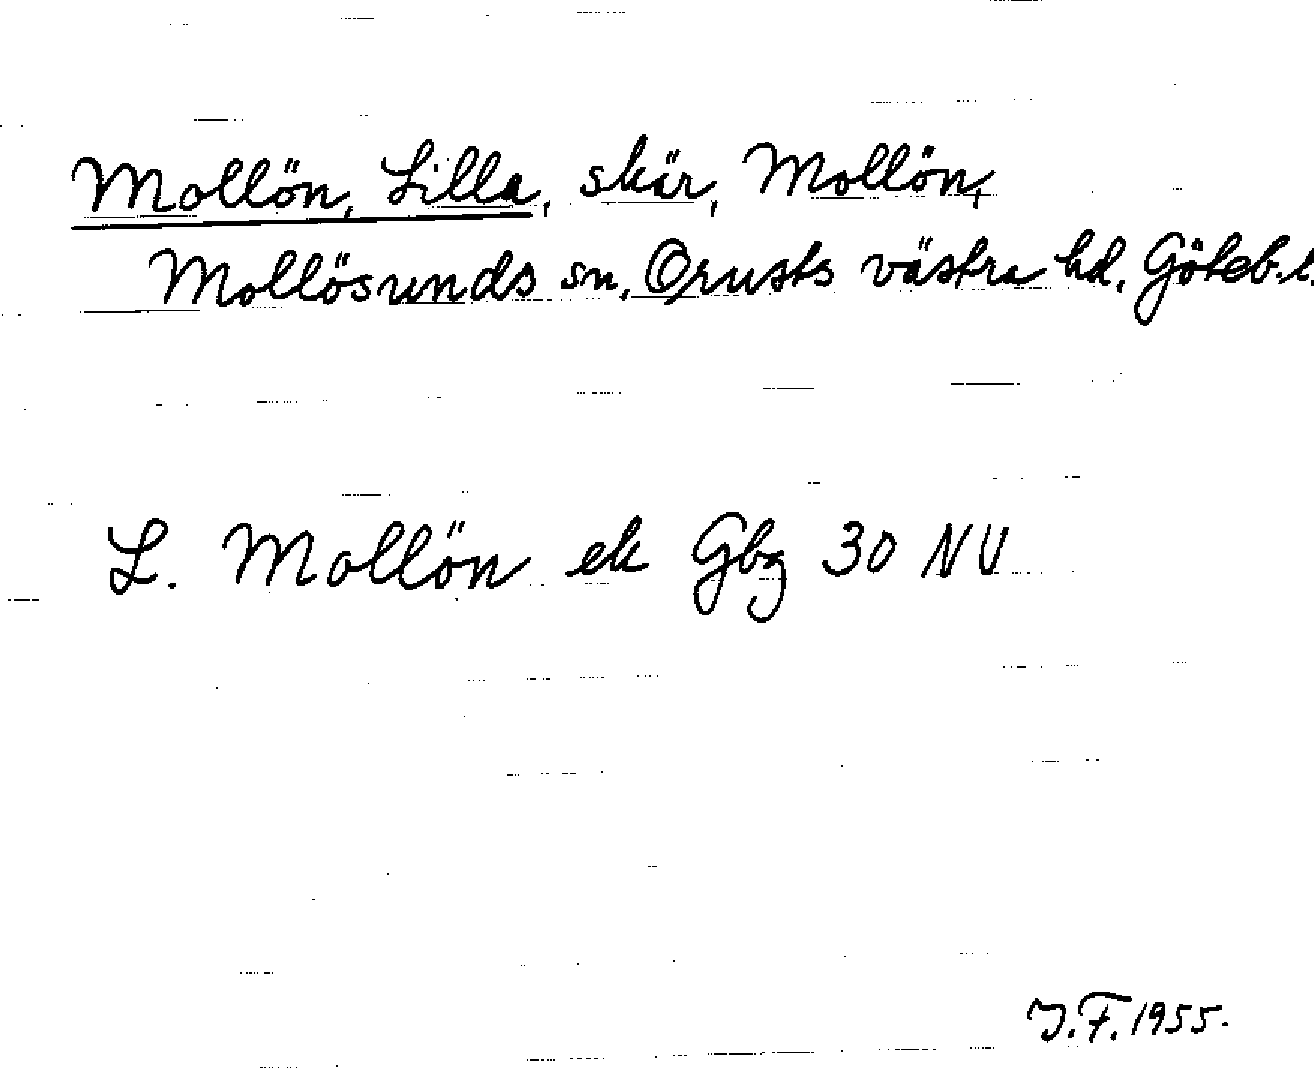 Mollön, Lilla, skär, Mollön,
Mollösunds sn, Orusts västra hd, Göteb. l.
L. Mollön ek Gbg 30 NV
J.F. 1955.